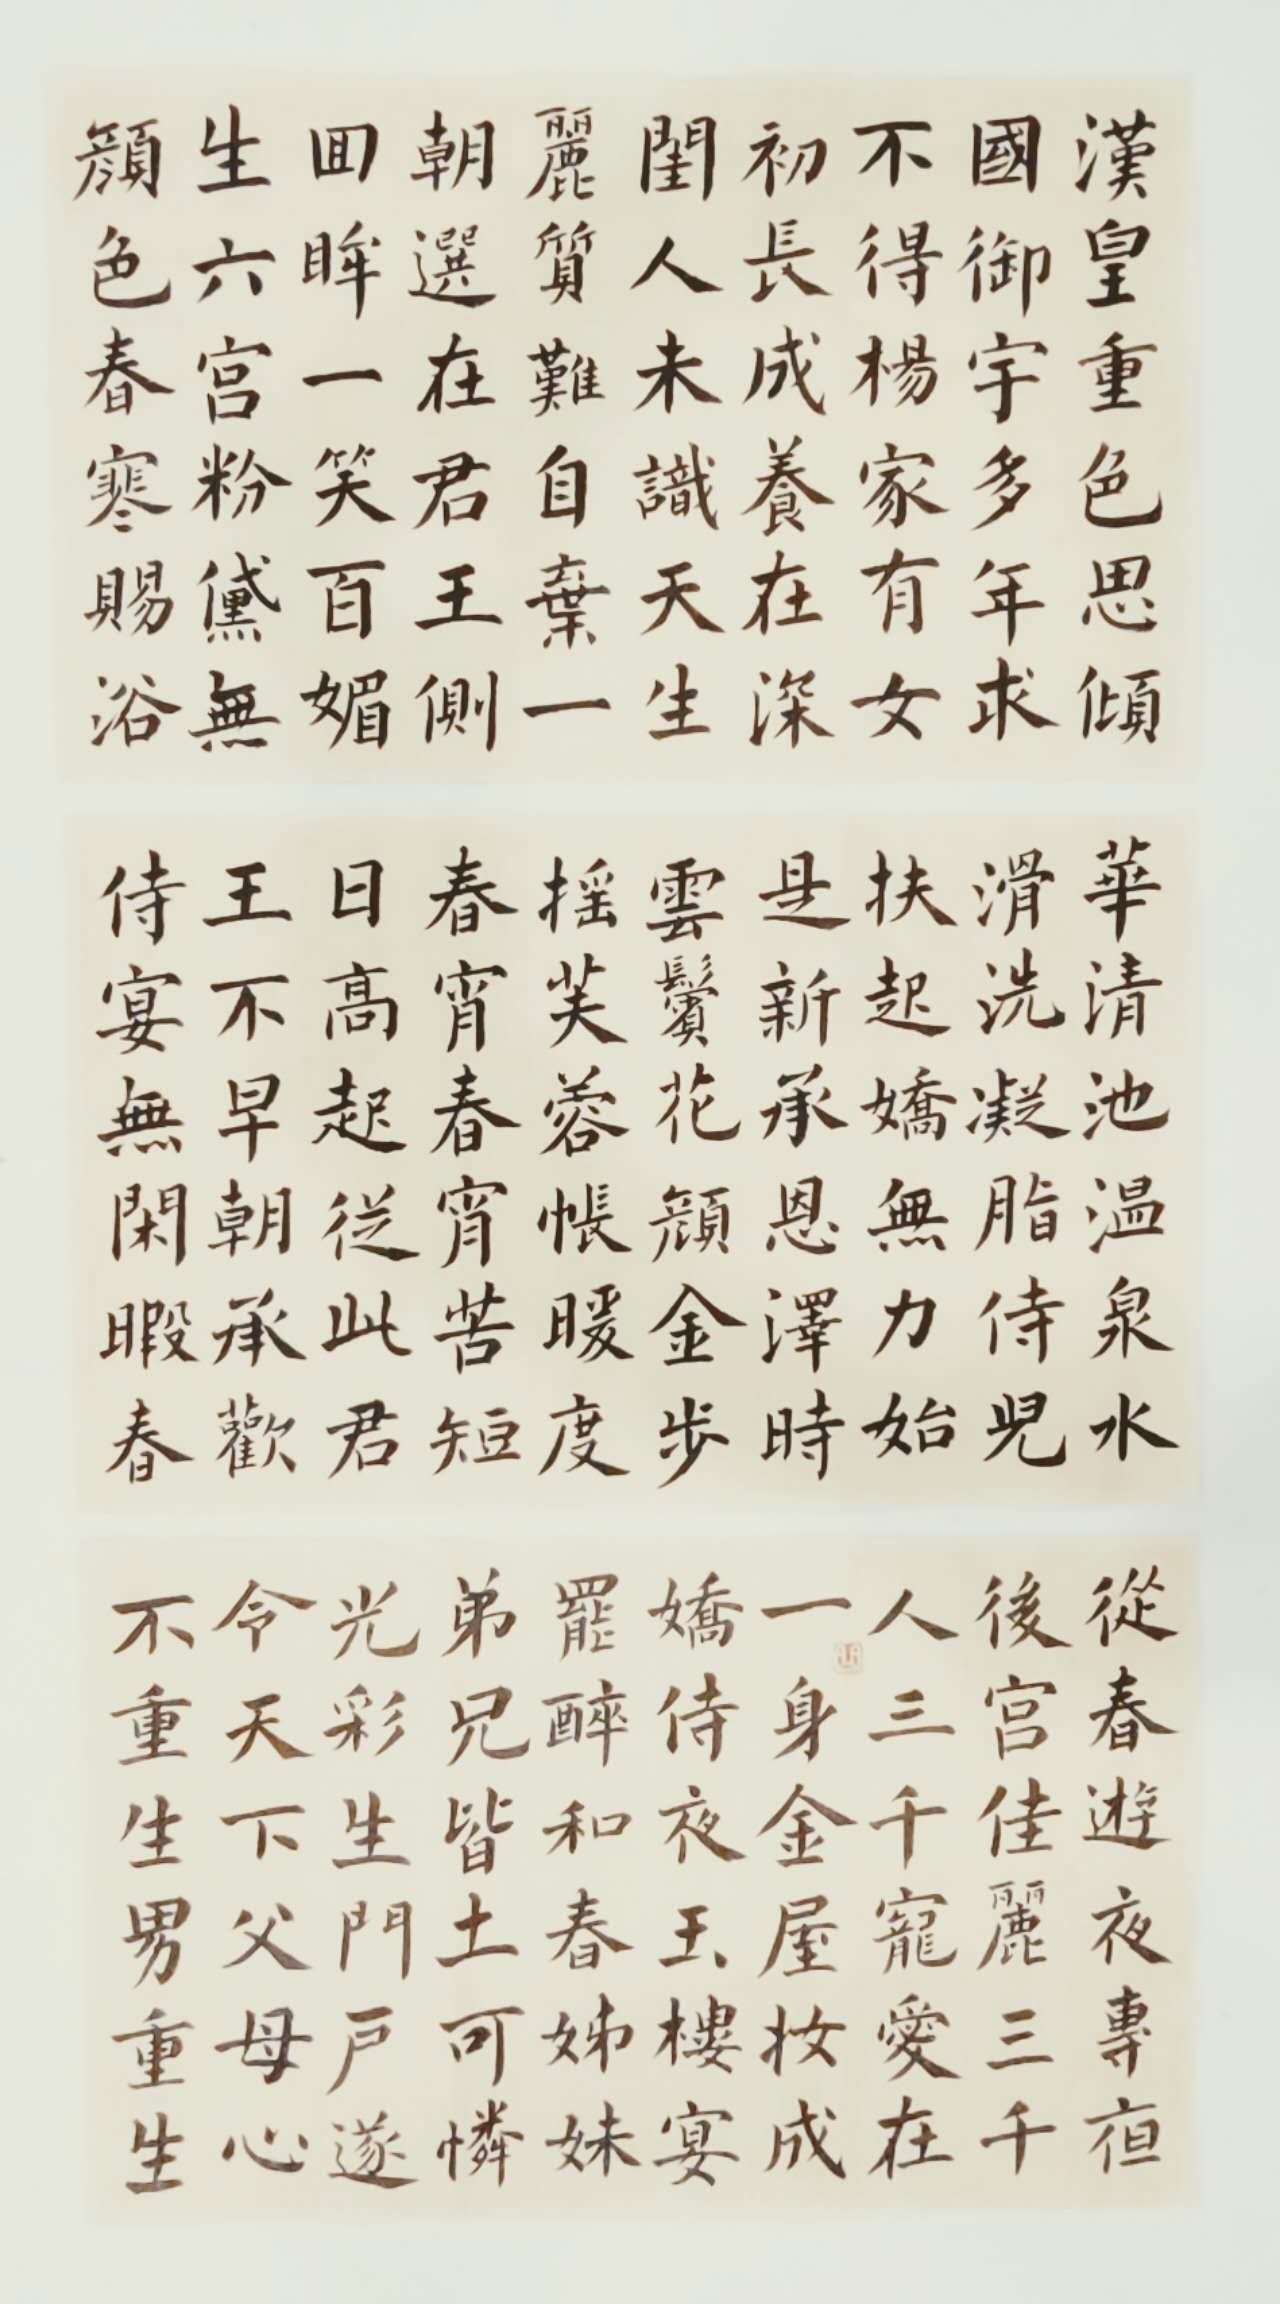 漢皇重色思傾
國御宇多年求
不得楊家有女
初長成養在深
閨人未識天生
麗質難自棄一
朝選在君王側
回眸一笑百媚
生六宮粉黛無
顏色春寒賜浴
華清池温泉水
滑洗凝脂侍兒
扶起嬌無力始
是新承恩澤時
雲鬢花顏金步
搖芙蓉帳暖度
春宵春宵苦短
日高起從此君
王不早朝承歡
侍宴無閑暇春
從春遊夜專夜
後宮佳麗三千
人三千寵愛在
一身金屋妝成
嬌侍夜玉樓宴
罷醉和春姊妹
弟兄皆土可憐
光彩生門戶遂
令天下父母心
不重生男重生